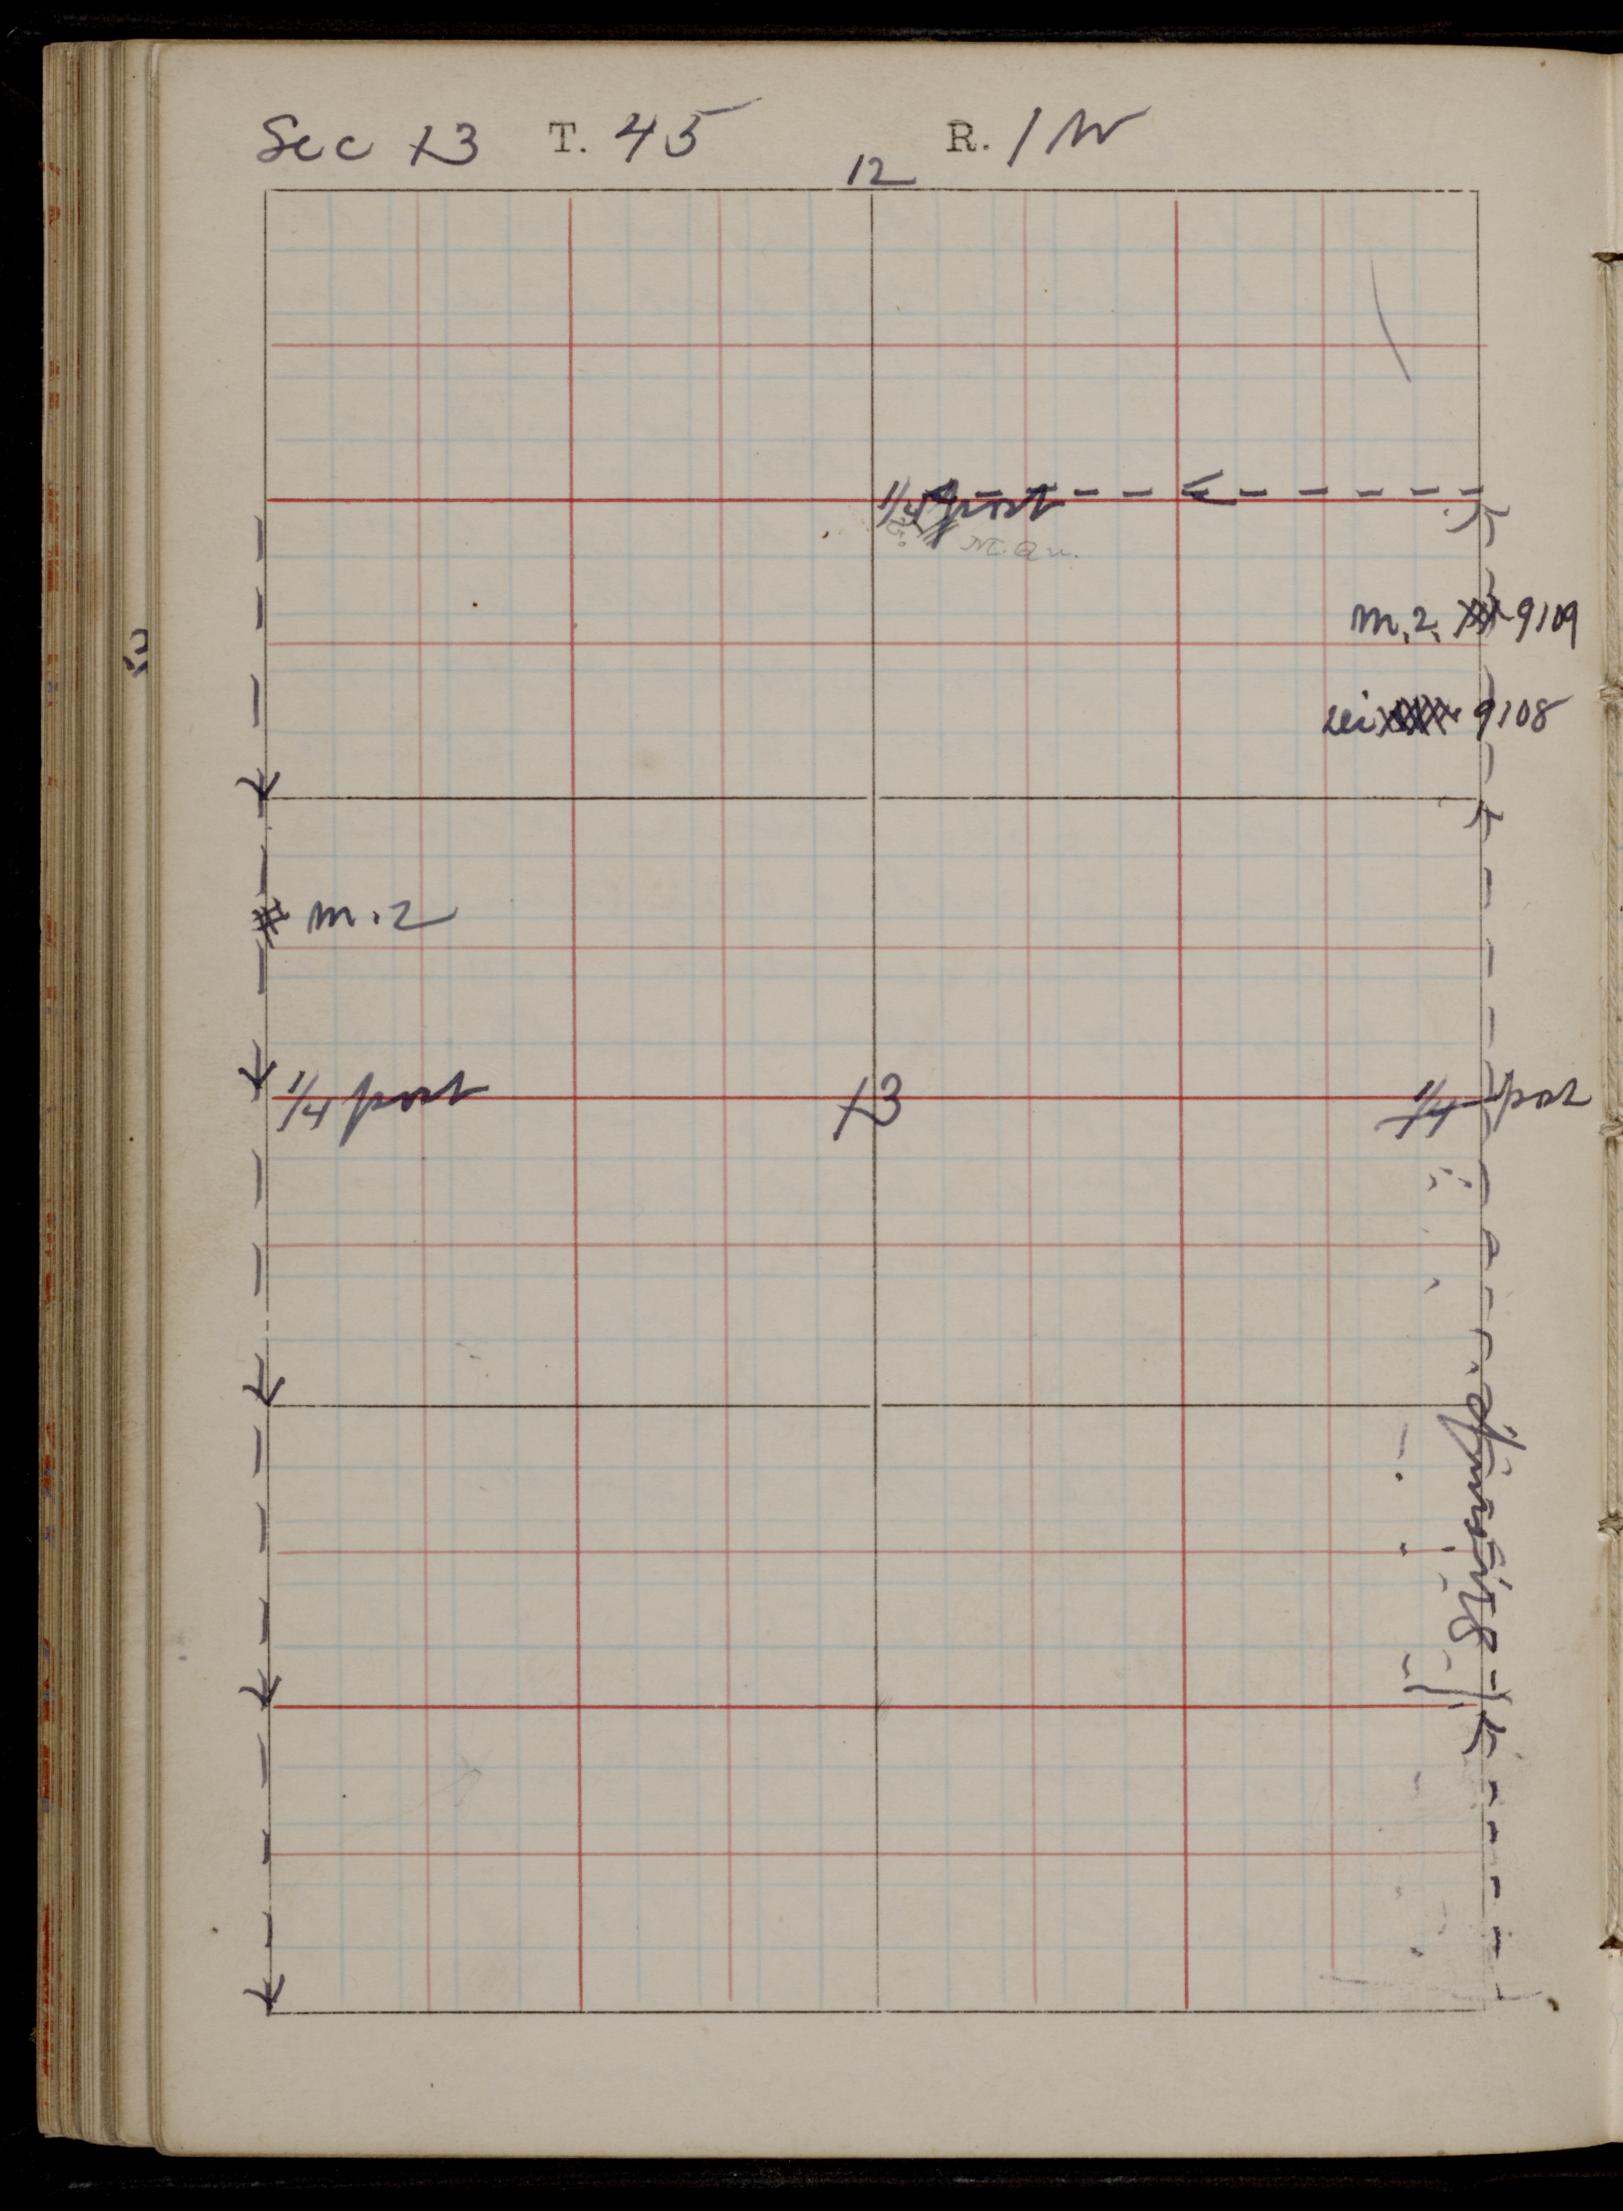 Sec 13 T. 45 R. 1 W
12
1/4 post
N. Qu.
m.2. 9109
9108
m.2
1/4 post 13 1/4 post